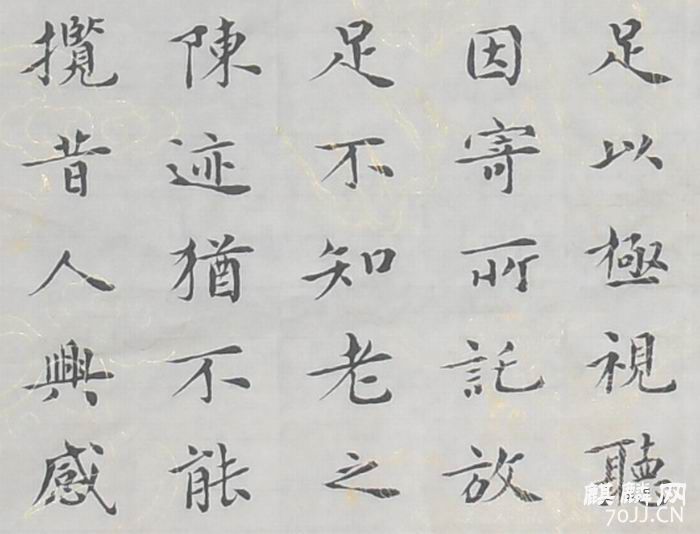 足以極視聽
因寄所託放
足不知老之
陳迹猶不能
攬昔人興感
麒麟网
70JJ.CN